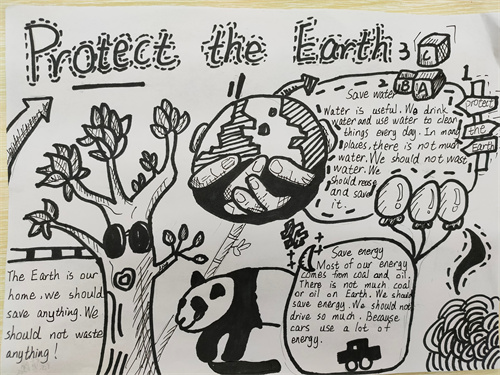 Protect the Earth
3
C
2
B A
1
protect
the
Earth
Save water
Water is useful. We drink
water and use water to clean
things every day. In many
places, there is not much
water. We should not wast
water. We
should reuse
and save
it.
Save energy
Most of our energy
comes from coal and oil.
There is not much coal
or oil on Earth. We should
save energy. We should not
drive so much. Because
cars use a lot of
energy.
The Earth is our
home. we should
save anything. We
should not waste
anything!